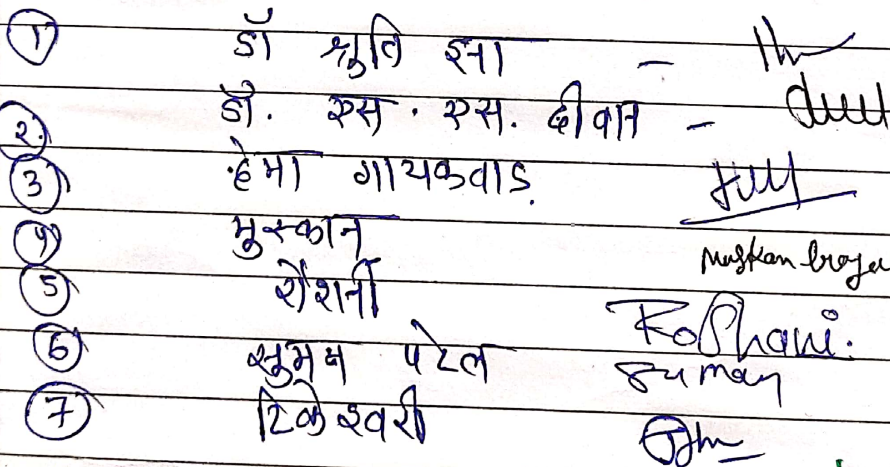 1 डॉ श्रुति झा -
2. डॉ. एस. एस. दीवान -
3 हेमा गायकवाड
4 मुस्कान Muskan
5 रोशनी Roshani.
6 सुमन पटेल Suman
7 टिकेश्वरी